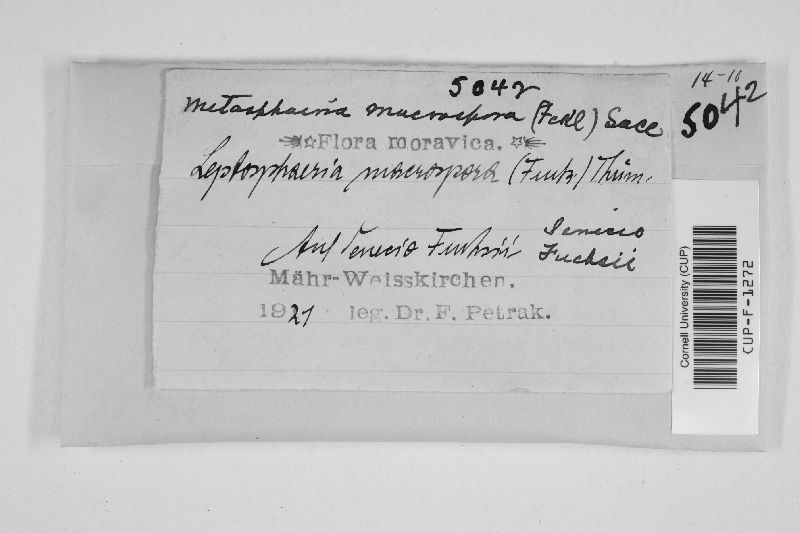 5042
Metasphaeria macrospora (Fckl) Sacc
Flora moravica.
Leptosphaeria macrospora (Fuck.) Thüm.
Auf Senecio Fuchsii Senecio
Fuchsii
Mähr-Weisskirchen.
1921 leg. Dr. F. Petrak.
14-16
5042
Cornell University (CUP)
CUP-F-1272